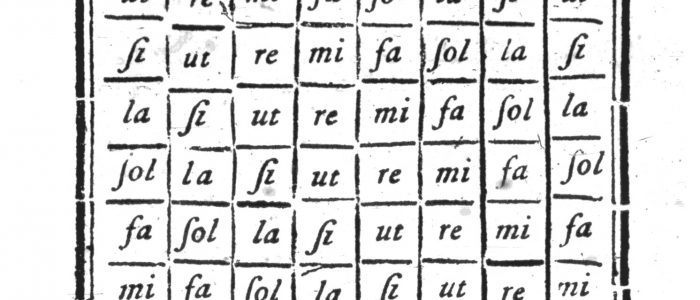 ſi ut re mi fa ſol la ſi
la ſi ut re mi fa ſol la
ſol la ſi ut re mi fa ſol
fa ſol la ſi ut re mi fa
mi fa ſol la ſi ut re mi